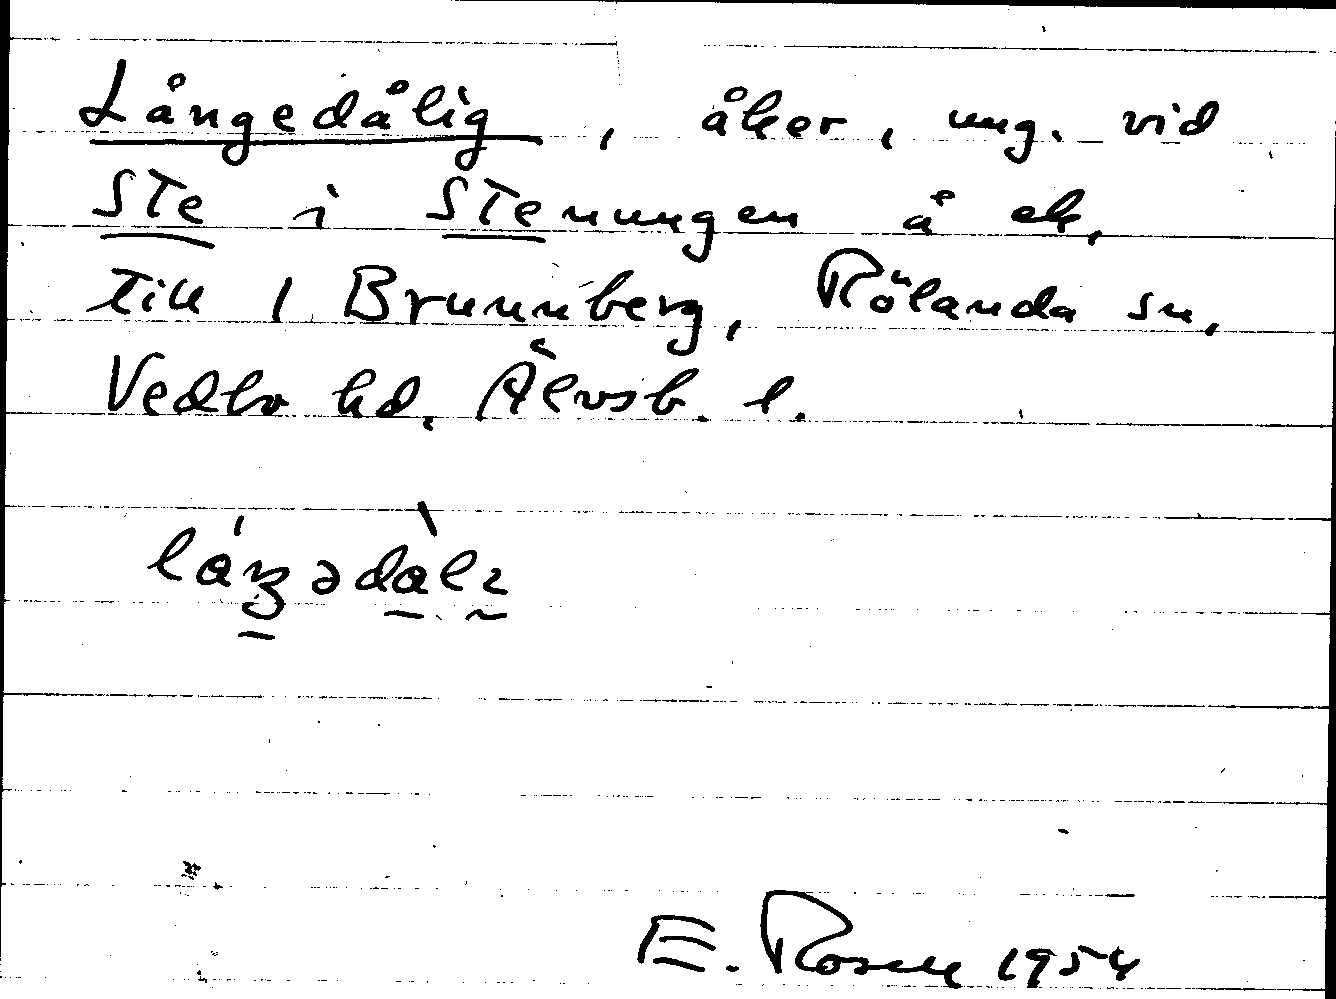 Långedålig, åker, ung. vid
Ste i Stenungen å ek.
till 1 Brunnberg, Rölanda sn,
Vedbo hd. Älvsb. l.
E. Rosell 1954